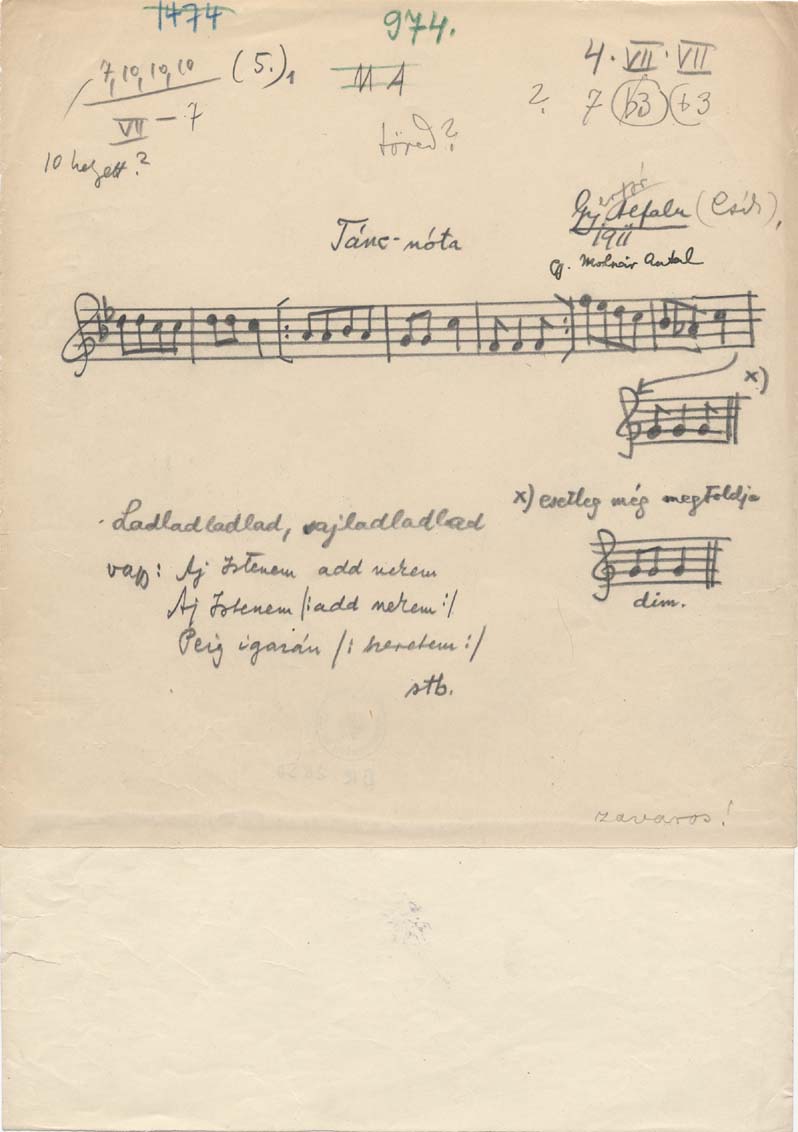 1474
974.
7,10,10,10 (5.)1
VII – 7
10 helyett?
M A
töred?
4 · VII · VII
? 7 b3 b3
Tánc-nóta
1911
gy. Molnár Antal
x)
x) esetleg még megtoldja
dim.
Ladladladlad, sajladladlad
vagy: Aj Istenem add nekem
Aj Istenem /: add nekem :/
Péig igazán /: szeretem :/
stb.
zavaros!